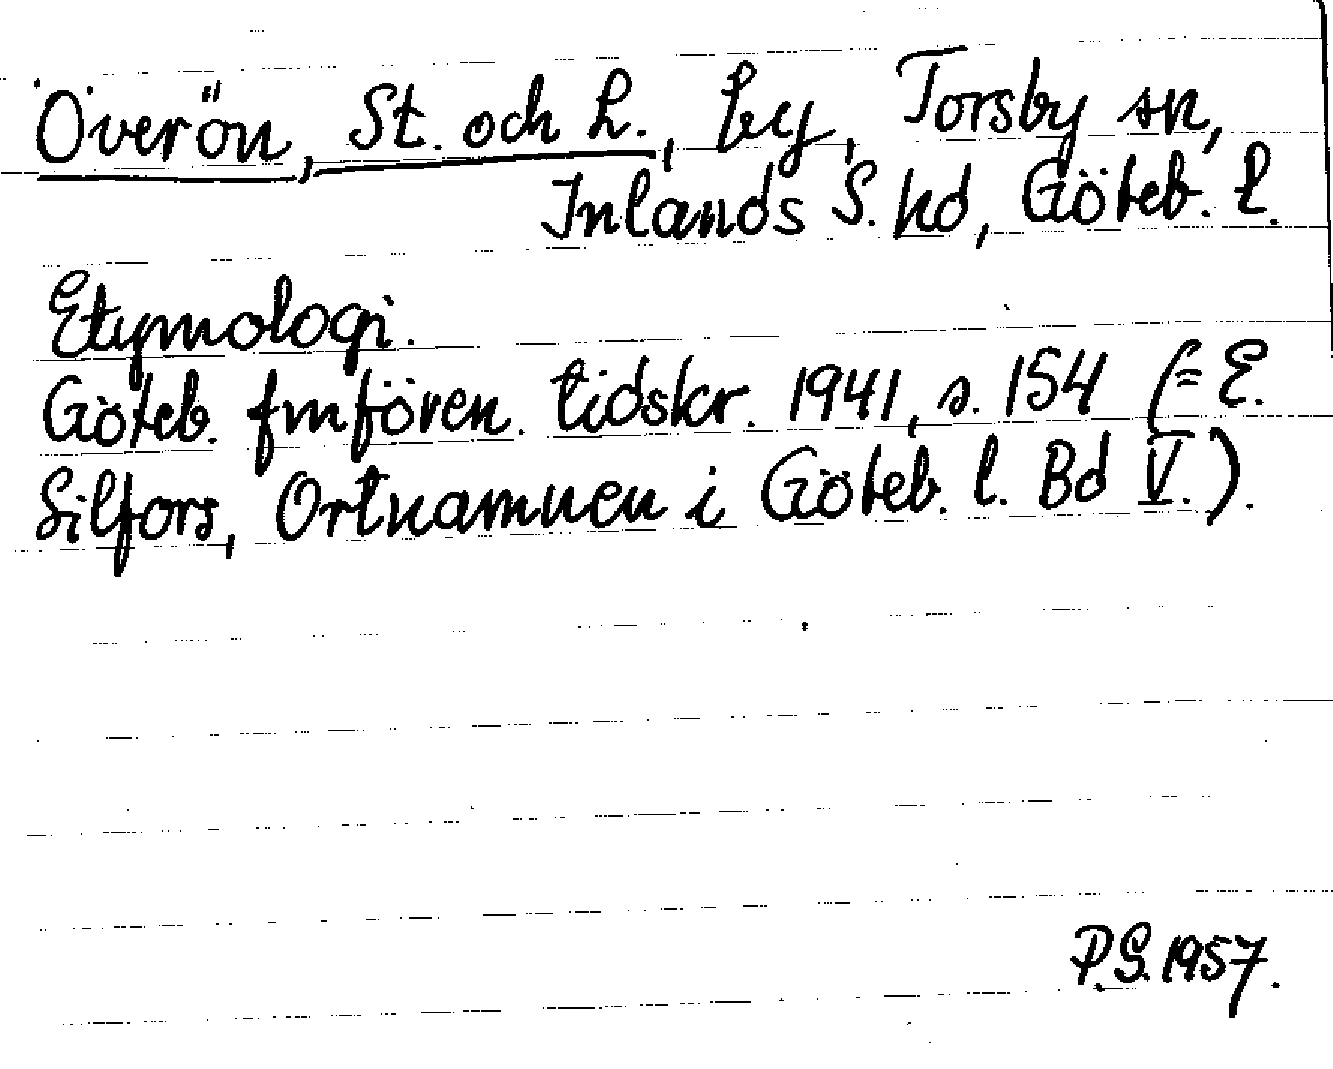 Överön, St. och L., by, Torsby sn,
Inlands S. hd, Göteb. l.
Etymologi.
Göteb. fmfören. tidskr. 1941, s. 154 (= E.
Silfors, Ortnamnen i Göteb. l. Bd V.).
P.S. 1957.